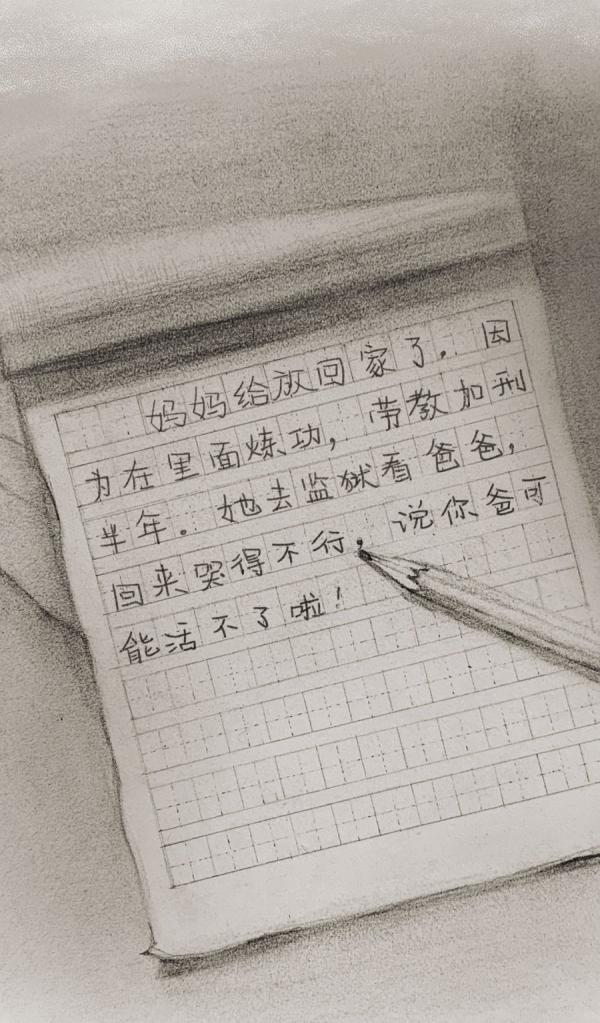 妈妈给放回家了。因
为在里面炼功，带教加刑
半年。她去监狱看爸爸，
回来哭得不行。说你爸可
能活不了啦！